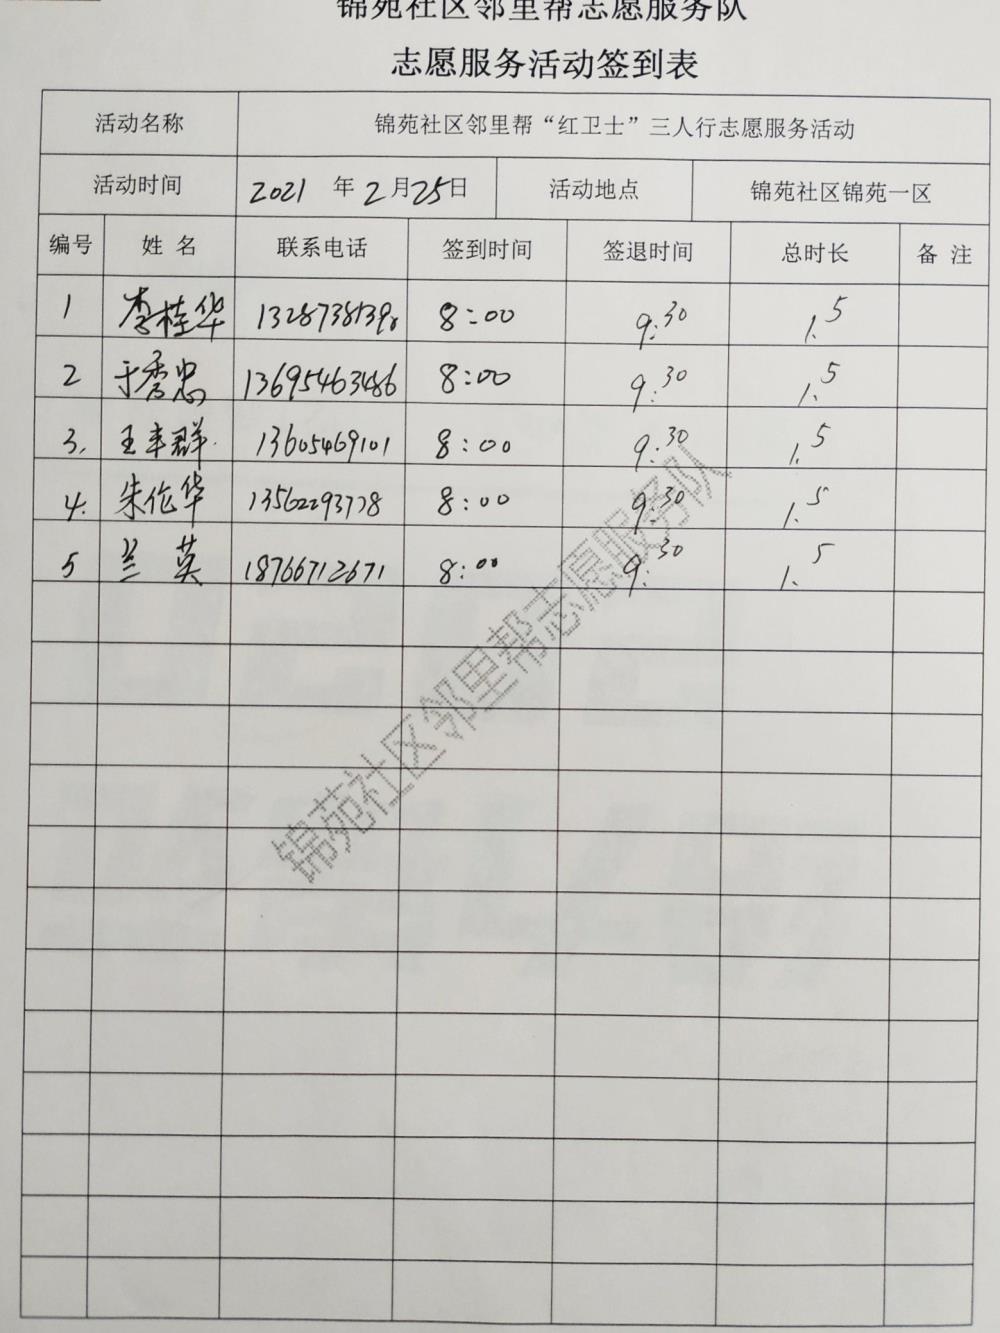 锦苑社区邻里帮志愿服务队
志愿服务活动签到表
活动名称 锦苑社区邻里帮“红卫士”三人行志愿服务活动
活动时间 2021 年 2 月 25 日 活动地点 锦苑社区锦苑一区
编号 姓 名 联系电话 签到时间 签退时间 总时长 备 注
1 李桂华 8:00 9:30 1.5
2 于秀忠 13695463486 8:00 9:30 1.5
3. 王丰群 13605469101 8:00 9:30 1.5
4. 朱作华 13562293778 8:00 9:30 1.5
5 兰英 18766712671 8:00 9:30 1.5
锦苑社区邻里帮志愿服务队